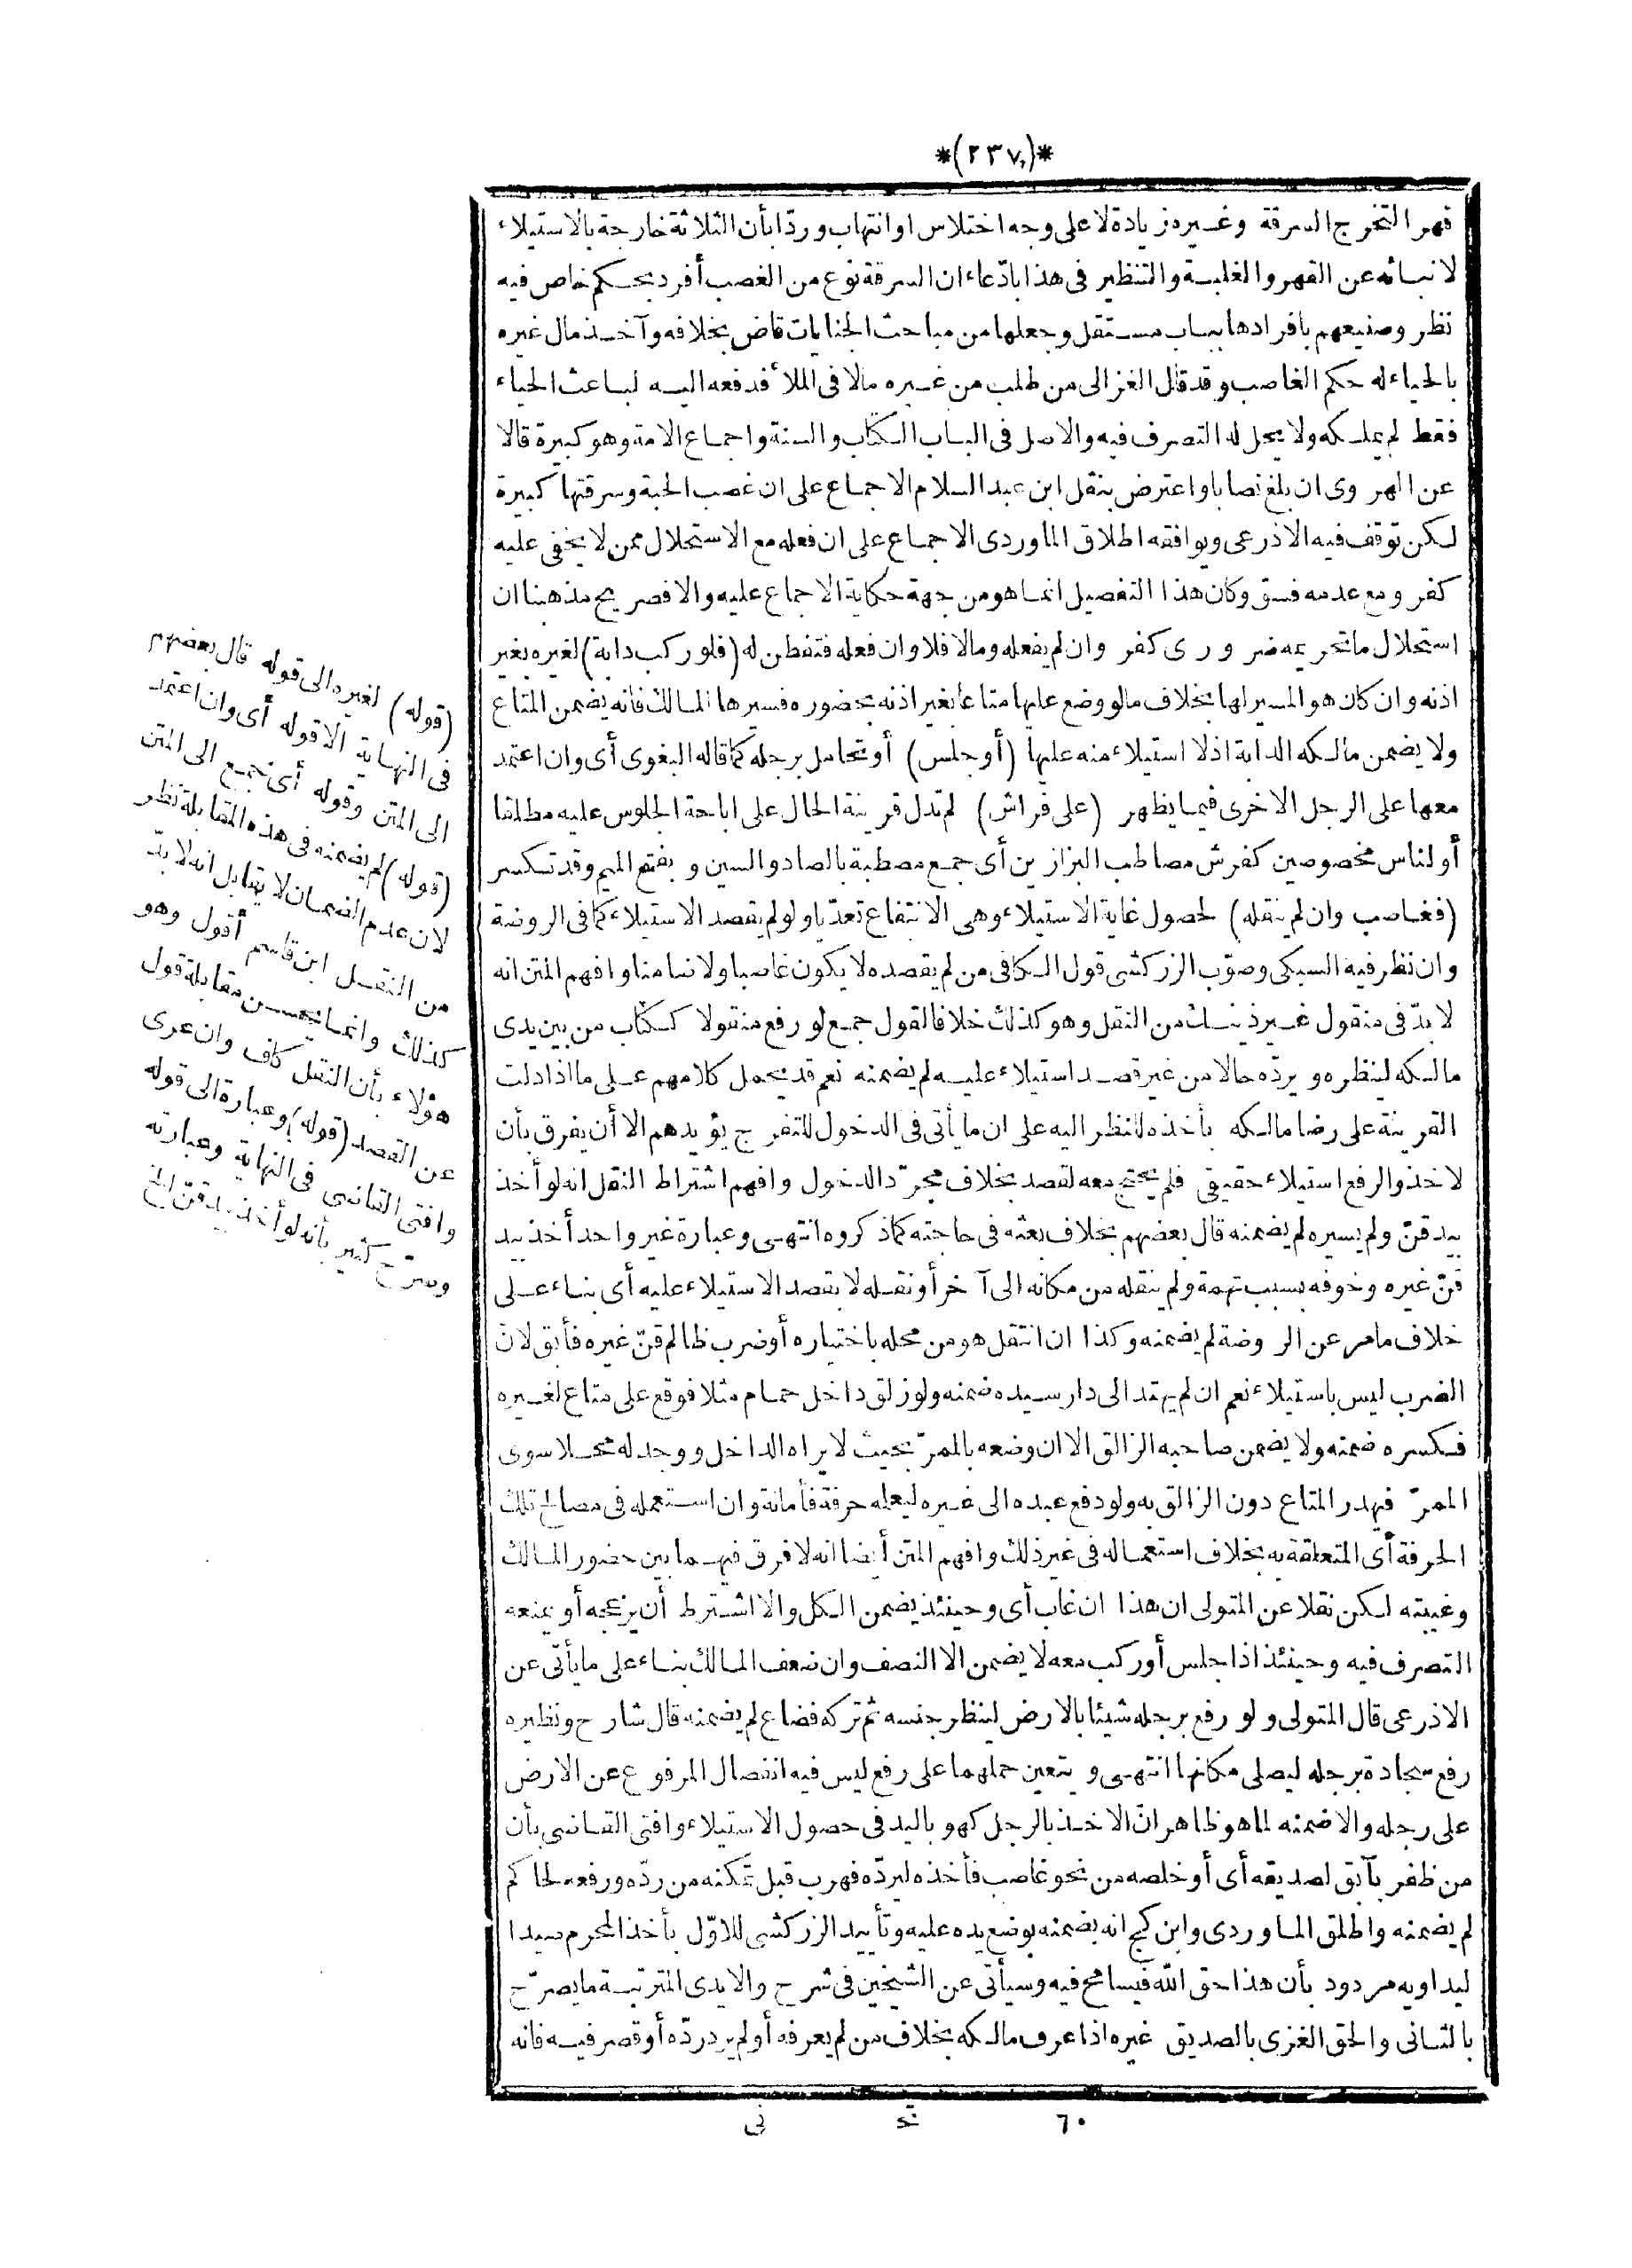 *(٢٣٧)*
قهرا لتخرج السرقة وغيره زيادة لا على وجه اختلاس او انتهاب وردّا بأن الثلاثة خارجة بالاستيلاء
لانبائه عن القهر والغلبة والتنظير فى هذا بادّعاء ان السرقة نوع من الغصب أفرد بحكم خاص فيه
نظر وصنيعهم بافرادها بباب مستقل وجعلها من مباحث الجنايات قاض بخلافه وآخذ مال غيره
بالحياء له حكم الغاصب وقد قال الغزالى من طلب من غيره مالا فى الملأ فدفعه اليه لباعث الحياء
فقط لم يملكه ولا يحل له التصرف فيه والاصل فى الباب الكتاب والسنة واجماع الامة وهو كبيرة قالا
عن الهروى ان بلغ نصابا واعترض بنقل ابن عبد السلام الاجماع على ان غصب الحبة وسرقتها كبيرة
لكن توقف فيه الاذرعى ويوافقه اطلاق الماوردى الاجماع على ان فعله مع الاستحلال ممن لا يخفى عليه
كفر ومع عدمه فسق وكان هذا التفصيل انما هو من جهة حكاية الاجماع عليه والا فصريح مذهبنا ان
استحلال ما تحريمه ضرورى كفر وان لم يفعله وما لا فلا وان فعله فتفطن له (فلو ركب دابة) لغيره بغير
اذنه وان كان هو المسير لها بخلاف ما لو وضع عليها متاعا بغير اذنه بحضوره فسيرها المالك فانه يضمن المتاع
ولا يضمن مالكه الدابة اذ لا استيلاء منه عليها (أو جلس) أو تحامل برجله كما قاله البغوى أى وان اعتمد
معها على الرجل الاخرى فيما يظهر (على فراش) لم تدل قرينة الحال على اباحة الجلوس عليه مطلقا
أو لناس مخصوصين كفرش مصاطب البزازين أى جمع مصطبة بالصاد والسين و بفتح الميم وقد تكسر
(فغاصب وان لم ينقله) لحصول غاية الاستيلاء وهى الانتفاع تعدّيا ولو لم يقصد الاستيلاء كما فى الروضة
وان نظر فيه السبكى وصوّب الزركشى قول الكافى من لم يقصده لا يكون غاصبا ولا ضامنا وافهم المتن انه
لا بدّ فى منقول غير ذينك من النقل وهو كذلك خلافا لقول جمع لو رفع منقولا ككتاب من بين يدى
مالكه لينظره و يردّه حالا من غير قصد استيلاء عليه لم يضمنه نعم قد يحمل كلامهم على ما اذا دلت
القرينة على رضا مالكه بأخذه للنظر اليه على ان ما يأتى فى الدخول للتفرج يؤيدهم الا أن يفرق بأن
لاخذ والرفع استيلاء حقيقى فلم يحتج معه لقصد بخلاف مجرّد الدخول وافهم اشتراط النقل انه لو أخذ
بيد قنّ ولم يسيره لم يضمنه قال بعضهم بخلاف بعثه فى حاجته كما ذكروه انتهى وعبارة غير واحد أخذ بيد
قنّ غيره وخوفه بسبب تهمة ولم ينقله من مكانه الى آخر أو نقله لا بقصد الاستيلاء عليه أى بناء على
خلاف ما مر عن الروضة لم يضمنه وكذا ان انتقل هو من محله باختياره أو ضرب ظالم قنّ غيره فأبق لانّ
الضرب ليس باستيلاء نعم ان لم يهتد الى دار سيده ضمنه ولو زلق داخل حمام مثلا فوقع على متاع لغيره
فكسره ضمنه ولا يضمن صاحبه الزالق الا ان وضعه بالممرّ بحيث لا يراه الداخل ووجد له محلا سوى
الممرّ فيهدر المتاع دون الزالق به ولو دفع عبده الى غيره ليعلمه حرفة فأمانة وان استعمله فى مصالح تلك
الحرفة أى المتعلقة به بخلاف استعماله فى غير ذلك وافهم المتن أيضا انه لا فرق فيهما بين حضور المالك
وغيبته لكن نقلا عن المتولى ان هذا ان غاب أى وحينئذ يضمن الكل والا اشترط أن يزعجه أو يمنعه
التصرف فيه وحينئذ اذا جلس أو ركب معه لا يضمن الا النصف وان ضعف المالك بناء على ما يأتى عن
الاذرعى قال المتولى ولو رفع برجله شيئا بالارض لينظر جنسه ثم تركه فضاع لم يضمنه قال شارح ونظيره
رفع سجادة برجله ليصلى مكانها انتهى و يتعين حملهما على رفع ليس فيه انفصال المرفوع عن الارض
على رجله والا ضمنه لما هو ظاهر انّ الاخذ بالرجل كهو باليد فى حصول الاستيلاء وافتى القاضى بأن
من ظفر بآبق لصديقه أى أو خلصه من نحو غاصب فأخذه ليردّه فهرب قبل تمكنه من ردّه ورفعه لحاكم
لم يضمنه واطلق الماوردى وابن كج انه يضمنه بوضع يده عليه وتأييد الزركشى للاوّل بأخذ المحرم صيدا
ليداويه مردود بأن هذا حق الله فيسامح فيه وسيأتى عن الشيخين فى شرح والايدى المترتبة ما يصرّح
بالثانى والحق الغزى بالصديق غيره اذا عرف مالكه بخلاف من لم يعرفه أو لم يرد ردّه أو قصر فيه فانه
٦٠ تحـ نى
(قوله) لغيره الى قوله قال بعضهم
فى النهاية الا قوله أى وان اعتمد
الى المتن وقوله أى جمع الى المتن
(قوله) لم يضمنه فى هذه المقابلة نظر
لان عدم الضمان لا يقابل انه لا بدّ
من النقل ابن قاسم أقول وهو
كذلك وانما يحسن مقابلة قول
هؤلاء بأن النقل كاف وان عرى
عن القصد (قوله) وعبارة الى قوله
وافتى القاضى فى النهاية وعبارته
وصرّح كثير بأنه لو أخذ بيد قنّ الخ